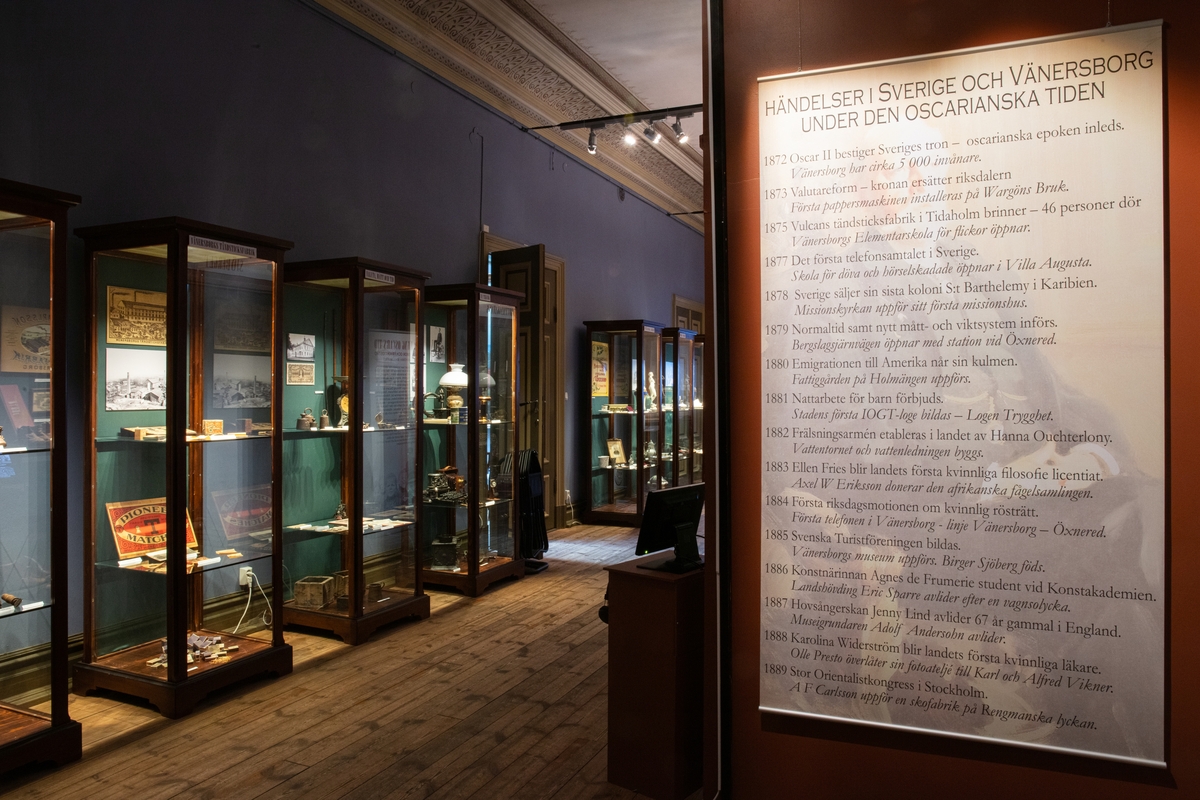 HÄNDELSER I SVERIGE OCH VÄNERSBORG
UNDER DEN OSCARIANSKA TIDEN
1872 Oscar II bestiger Sveriges tron – oscarianska epoken inleds.
Vänersborg har cirka 5 000 invånare.
1873 Valutareform – kronan ersätter riksdalern
Första pappersmaskinen installeras på Wargöns Bruk.
1875 Vulcans tändsticksfabrik i Tidaholm brinner – 46 personer dör
Vänersborgs Elementarskola för flickor öppnar.
1877 Det första telefonsamtalet i Sverige.
Skola för döva och hörselskadade öppnar i Villa Augusta.
1878 Sverige säljer sin sista koloni S:t Barthelemy i Karibien.
Missionskyrkan uppför sitt första missionshus.
1879 Normaltid samt nytt mått- och viktsystem införs.
Bergslagsjärnvägen öppnar med station vid Öxnered.
1880 Emigrationen till Amerika når sin kulmen.
Fattiggården på Holmängen uppförs.
1881 Nattarbete för barn förbjuds.
Stadens första IOGT-loge bildas – Logen Trygghet.
1882 Frälsningsarmén etableras i landet av Hanna Ouchterlony.
Vattentornet och vattenledningen byggs.
1883 Ellen Fries blir landets första kvinnliga filosofie licentiat.
Axel W Eriksson donerar den afrikanska fågelsamlingen.
1884 Första riksdagsmotionen om kvinnlig rösträtt.
Första telefonen i Vänersborg - linje Vänersborg – Öxnered.
1885 Svenska Turistföreningen bildas.
Vänersborgs museum uppförs. Birger Sjöberg föds.
1886 Konstnärinnan Agnes de Frumerie student vid Konstakademien.
Landshövding Eric Sparre avlider efter en vagnsolycka.
1887 Hovsångerskan Jenny Lind avlider 67 år gammal i England.
Museigrundaren Adolf Andersohn avlider.
1888 Karolina Widerström blir landets första kvinnliga läkare.
Olle Presto överlåter sin fotoateljé till Karl och Alfred Vikner.
1889 Stor Orientalistkongress i Stockholm.
A F Carlsson uppför en skofabrik på Rengmanska lyckan.
VÄNERSBORGS TÄNDSTICKSFABRIK
PIONEER
MATCH